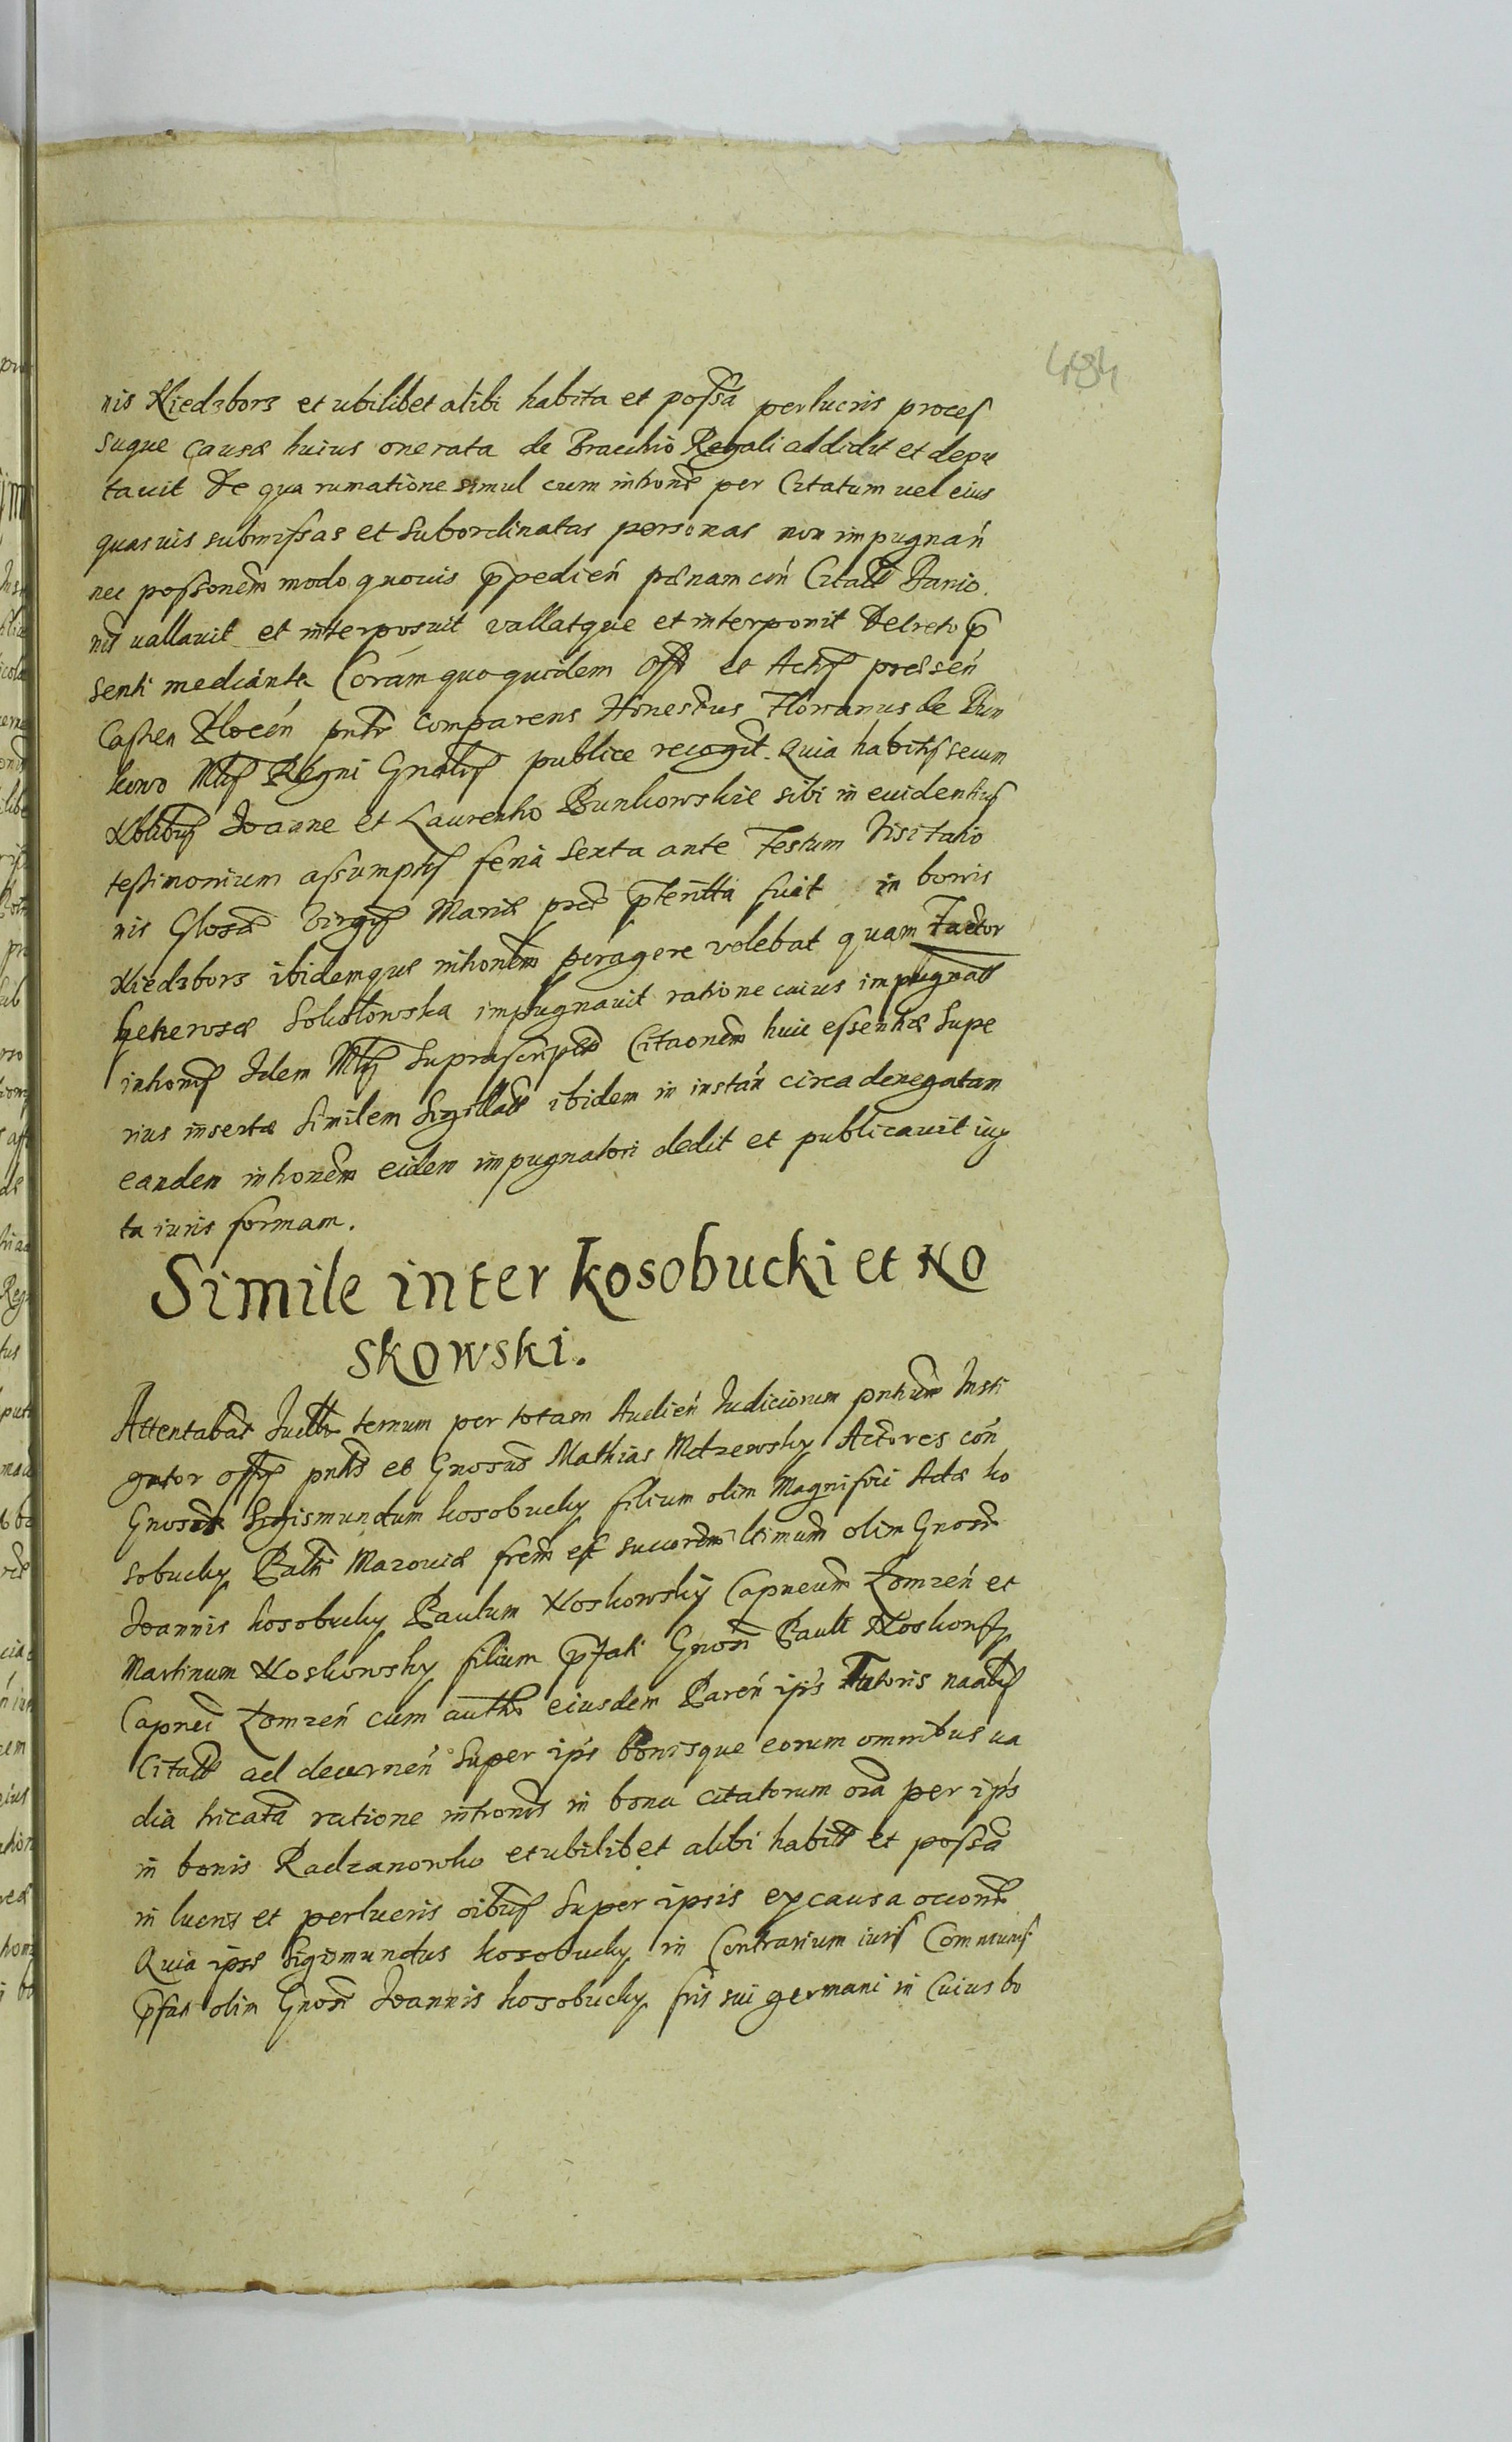 484
nis Niedzbors et ubilibet alibi habita et possa perlucris proces
suque causæ huius onerata de Bracchio Regali addidit et depu
tavit De qua rumatione simul cum intione per Citatum vel eius
quasvis submissas et subordinatas personas non impugnan
nec possonem modo quovis ppedien pænam con Citatt Banio
nis vallavit et interposuit vallatque et interponit Decreto p
senti mediante Coram quoquidem Off et Actis præsen
Castren Plocen pntr comparens Honestus Florianus de Bun
kowo Mlis Regni Gnalis publice recogt. Quia habitis secum
Nblibus Joanne et Laurentio Bunkowskie sibi in evidentius
testimonium assumptis feria sexta ante Festum Visitatio
nis Glosæ Virgis Mariæ præ pteritta fuit in bonis
Niedzbors ibidemque intionem peragere volebat quam Factor
Generosæ Sokolowska impugnavit ratione cuius impugnatt
intionis Idem Mlis suprascriptam Citaonem huic essentiæ supe
rius insertæ similem sigillatt ibidem in instan circa denegatam
eandem intionem eidem impugnatori dedit et publicavit iux
ta iuris formam.
Simile inter Kosobucki et No
skowski.
Attentabat Judtr ternum per totam Audien Judiciorum pntium Insti
gator Offis pntis et Gnosus Mathias Mdzewsky Actores con
Gnosos Sigismundum kosobucky filium olim Magnifici Adæ ko
sobucky Palni Mazoviæ frem et succorem ltimum olim Gnosi
Joannis kosobucky Paulum Noskowsky Capneum Lomzen et
Martinum Noskowsky filium pfati Gnosi Pauli Noskowsky
Capnei Lomzen cum autho eiusdem Paren ips Tutoris naalis
Citatt ad decernen super ips bonisque eorum omnibus va
dia tricata ratione intronis in bona citatorum oia per ips
in bonis Radzanowko et ubilibet alibi habitt et possa
in lucris et perlucris oibus super ipsis ex causa occonis
Quia ipse Sigismundus kosobucky in Contrarium iuris Communis
pfati olim Gnosi Joannis kosobucky fris sui germani in Cuius bo